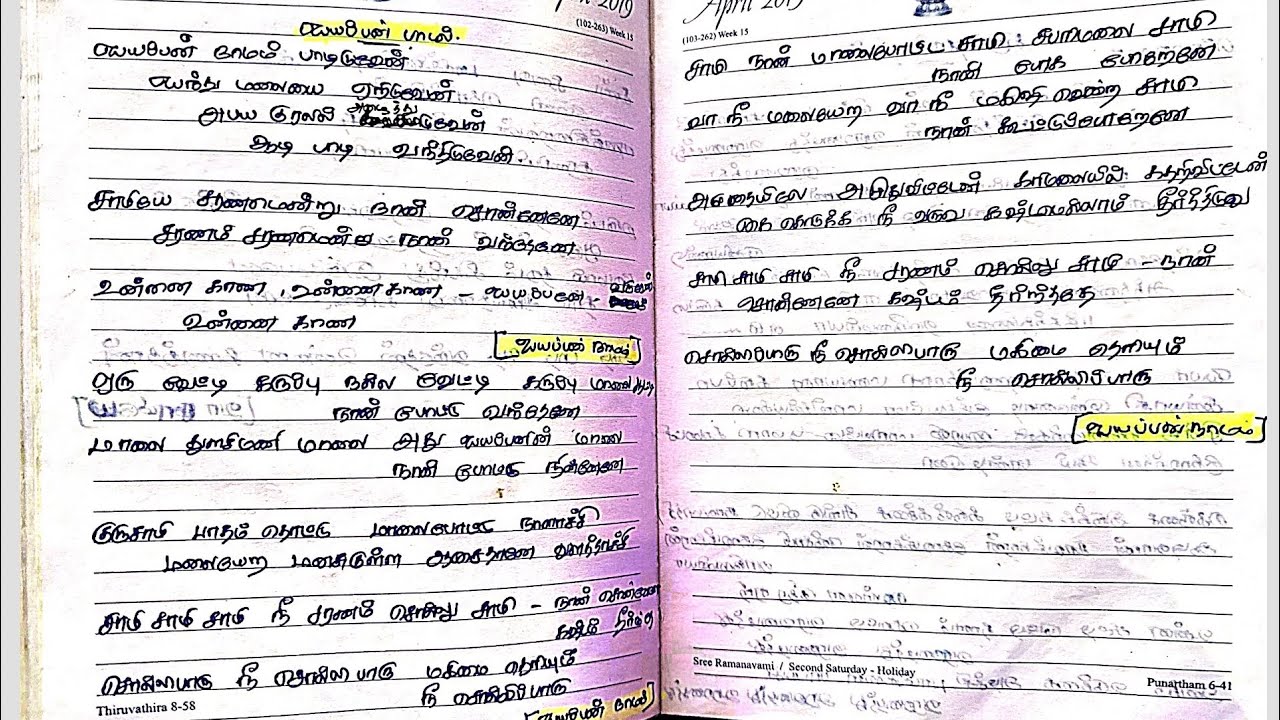 2019
(102-263) Week 15
ஐயப்பன் பாடல்.
ஐயப்பன் நாமம் பாடிடுவேன்
ஐந்து மலையை ஏறிடுவேன்
அபய குரலில் அழைத்து
ஆடி பாடி வந்திடுவேன்.
சாமியே சரணமென்று நான் சொன்னேனே
சரணம் சரணமென்று நான் வந்தேனே
உன்னை காண, உன்னை காண - ஐயப்பனே
உன்னை காண
[ஐயப்பன் நாமம்]
ஒரு வேட்டி கருப்பு நல்ல வேட்டி கருப்பு
நான் போட்டு வந்தேனே
மாலை துளசிமணி மாலை அது ஐயப்பனின் மாலை
நான் போட்டு நின்னேனே
குருசாமி பாதம் தொட்டு மாலைபோட்டு நாளாச்சி
மலையேற மனசுகுள்ள ஆசைதானே
சாமி சாமி சாமி நீ சரணம் சொல்லு சாமி - நான் சொன்னேனே
சொல்லிபாரு நீ சொல்லிபாரு மகிமை தெரியும்
நீ சொல்லிபாரு
Thiruvathira 8-58
[ஐயப்பன் நாமம்]
April 2019
(103-262) Week 15
சாமி நான் மாலைபோட்ட சாமி சபரிமலை சாமி
நான் போக போறேனே
வா நீ மலையேற வா நீ மகிஷி வென்ற சாமி
நான் கூட்டுபோறேனே
கை கொடுக்க நீ வருவ கஷ்டமெல்லாம் தீர்த்திடுவ
சாமி சாமி சாமி நீ சரணம் சொல்லு சாமி - நான்
சொன்னேனே கஷ்டம்
சொல்லிபாரு நீ சொல்லிபாரு மகிமை தெரியும்
நீ சொல்லிபாரு
[ஐயப்பன் நாமம்]
Sree Ramanavami / Second Saturday - Holiday
Punartham 6-41